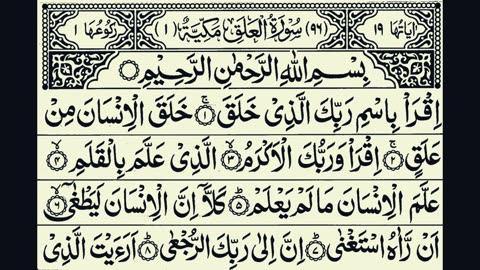 اٰيَاتُهَا ١٩ (٩٦) سُوْرَةُ الْعَلَقِ مَكِّيَّةٌ (١) رُكُوْعُهَا ١
بِسْمِ اللّٰهِ الرَّحْمٰنِ الرَّحِيْمِ
اِقْرَاْ بِاسْمِ رَبِّكَ الَّذِيْ خَلَقَ ۚ ١ خَلَقَ الْاِنْسَانَ مِنْ
عَلَقٍ ۚ ٢ اِقْرَاْ وَرَبُّكَ الْاَكْرَمُ ۙ ٣ الَّذِيْ عَلَّمَ بِالْقَلَمِ ۙ ٤
عَلَّمَ الْاِنْسَانَ مَا لَمْ يَعْلَمْ ؕ ٥ كَلَّاۤ اِنَّ الْاِنْسَانَ لَيَطْغٰۤى ۙ ٦
اَنْ رَّاٰهُ اسْتَغْنٰى ؕ ٧ اِنَّ اِلٰى رَبِّكَ الرُّجْعٰى ؕ ٨ اَرَءَيْتَ الَّذِيْ